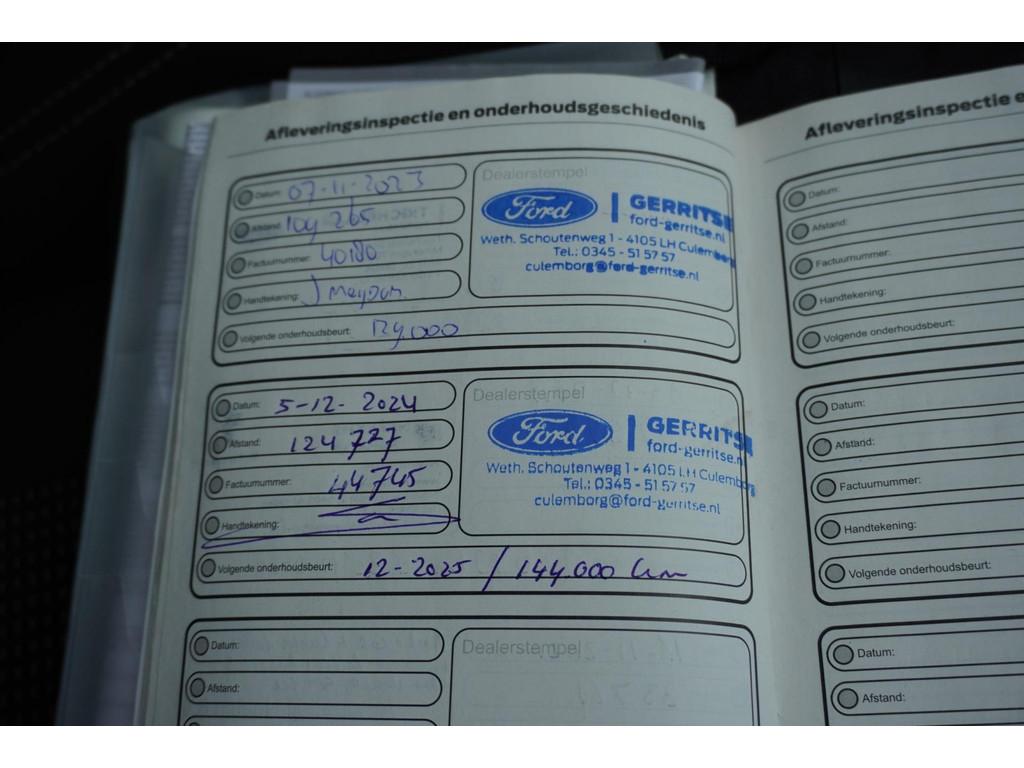 Afleveringsinspectie en onderhoudsgeschiedenis
Datum: 07-11-2023
Afstand: 109 265
Factuurnummer: 40180
Handtekening:
Volgende onderhoudsbeurt: 129.000
Dealerstempel
Ford GERRITSE
ford-gerritse.nl
Weth. Schoutenweg 1 - 4105 LH Culemborg
Tel.: 0345 - 51 57 57
culemborg@ford-gerritse.nl
Datum: 5-12-2024
Afstand: 124 727
Factuurnummer: 44745
Handtekening:
Volgende onderhoudsbeurt: 12-2025 / 144.000 km
Dealerstempel
Ford GERRITS
ford-gerritse.n
Weth. Schoutenweg 1 - 4105 LH Culemborg
Tel.: 0345 - 51 57 57
culemborg@ford-gerritse.nl
Datum:
Afstand:
Dealerstempel
Afleveringsinspectie e
Datum:
Afstand:
Factuurnummer:
Handtekening:
Volgende onderhoudsbeurt:
Datum:
Afstand:
Factuurnummer:
Handtekening:
Volgende onderhoudsbeurt:
Datum:
Afstand: